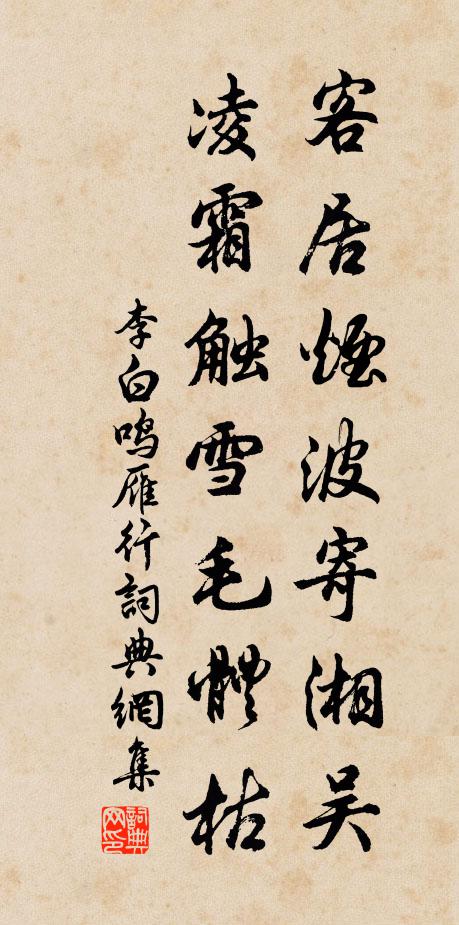 客居煙波寄湘吴
凌霜触雪毛體枯
李白鸣雁行詞典網集
詞典网印